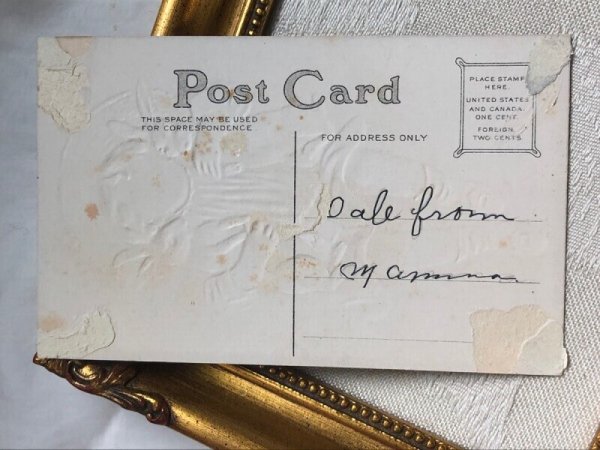 Post Card
THIS SPACE MAY BE USED
FOR CORRESPONDENCE
FOR ADDRESS ONLY
PLACE STAMP
HERE.
UNITED STATES
AND CANADA.
ONE CENT.
FOREIGN,
TWO CENTS.
Dale from
Mamma